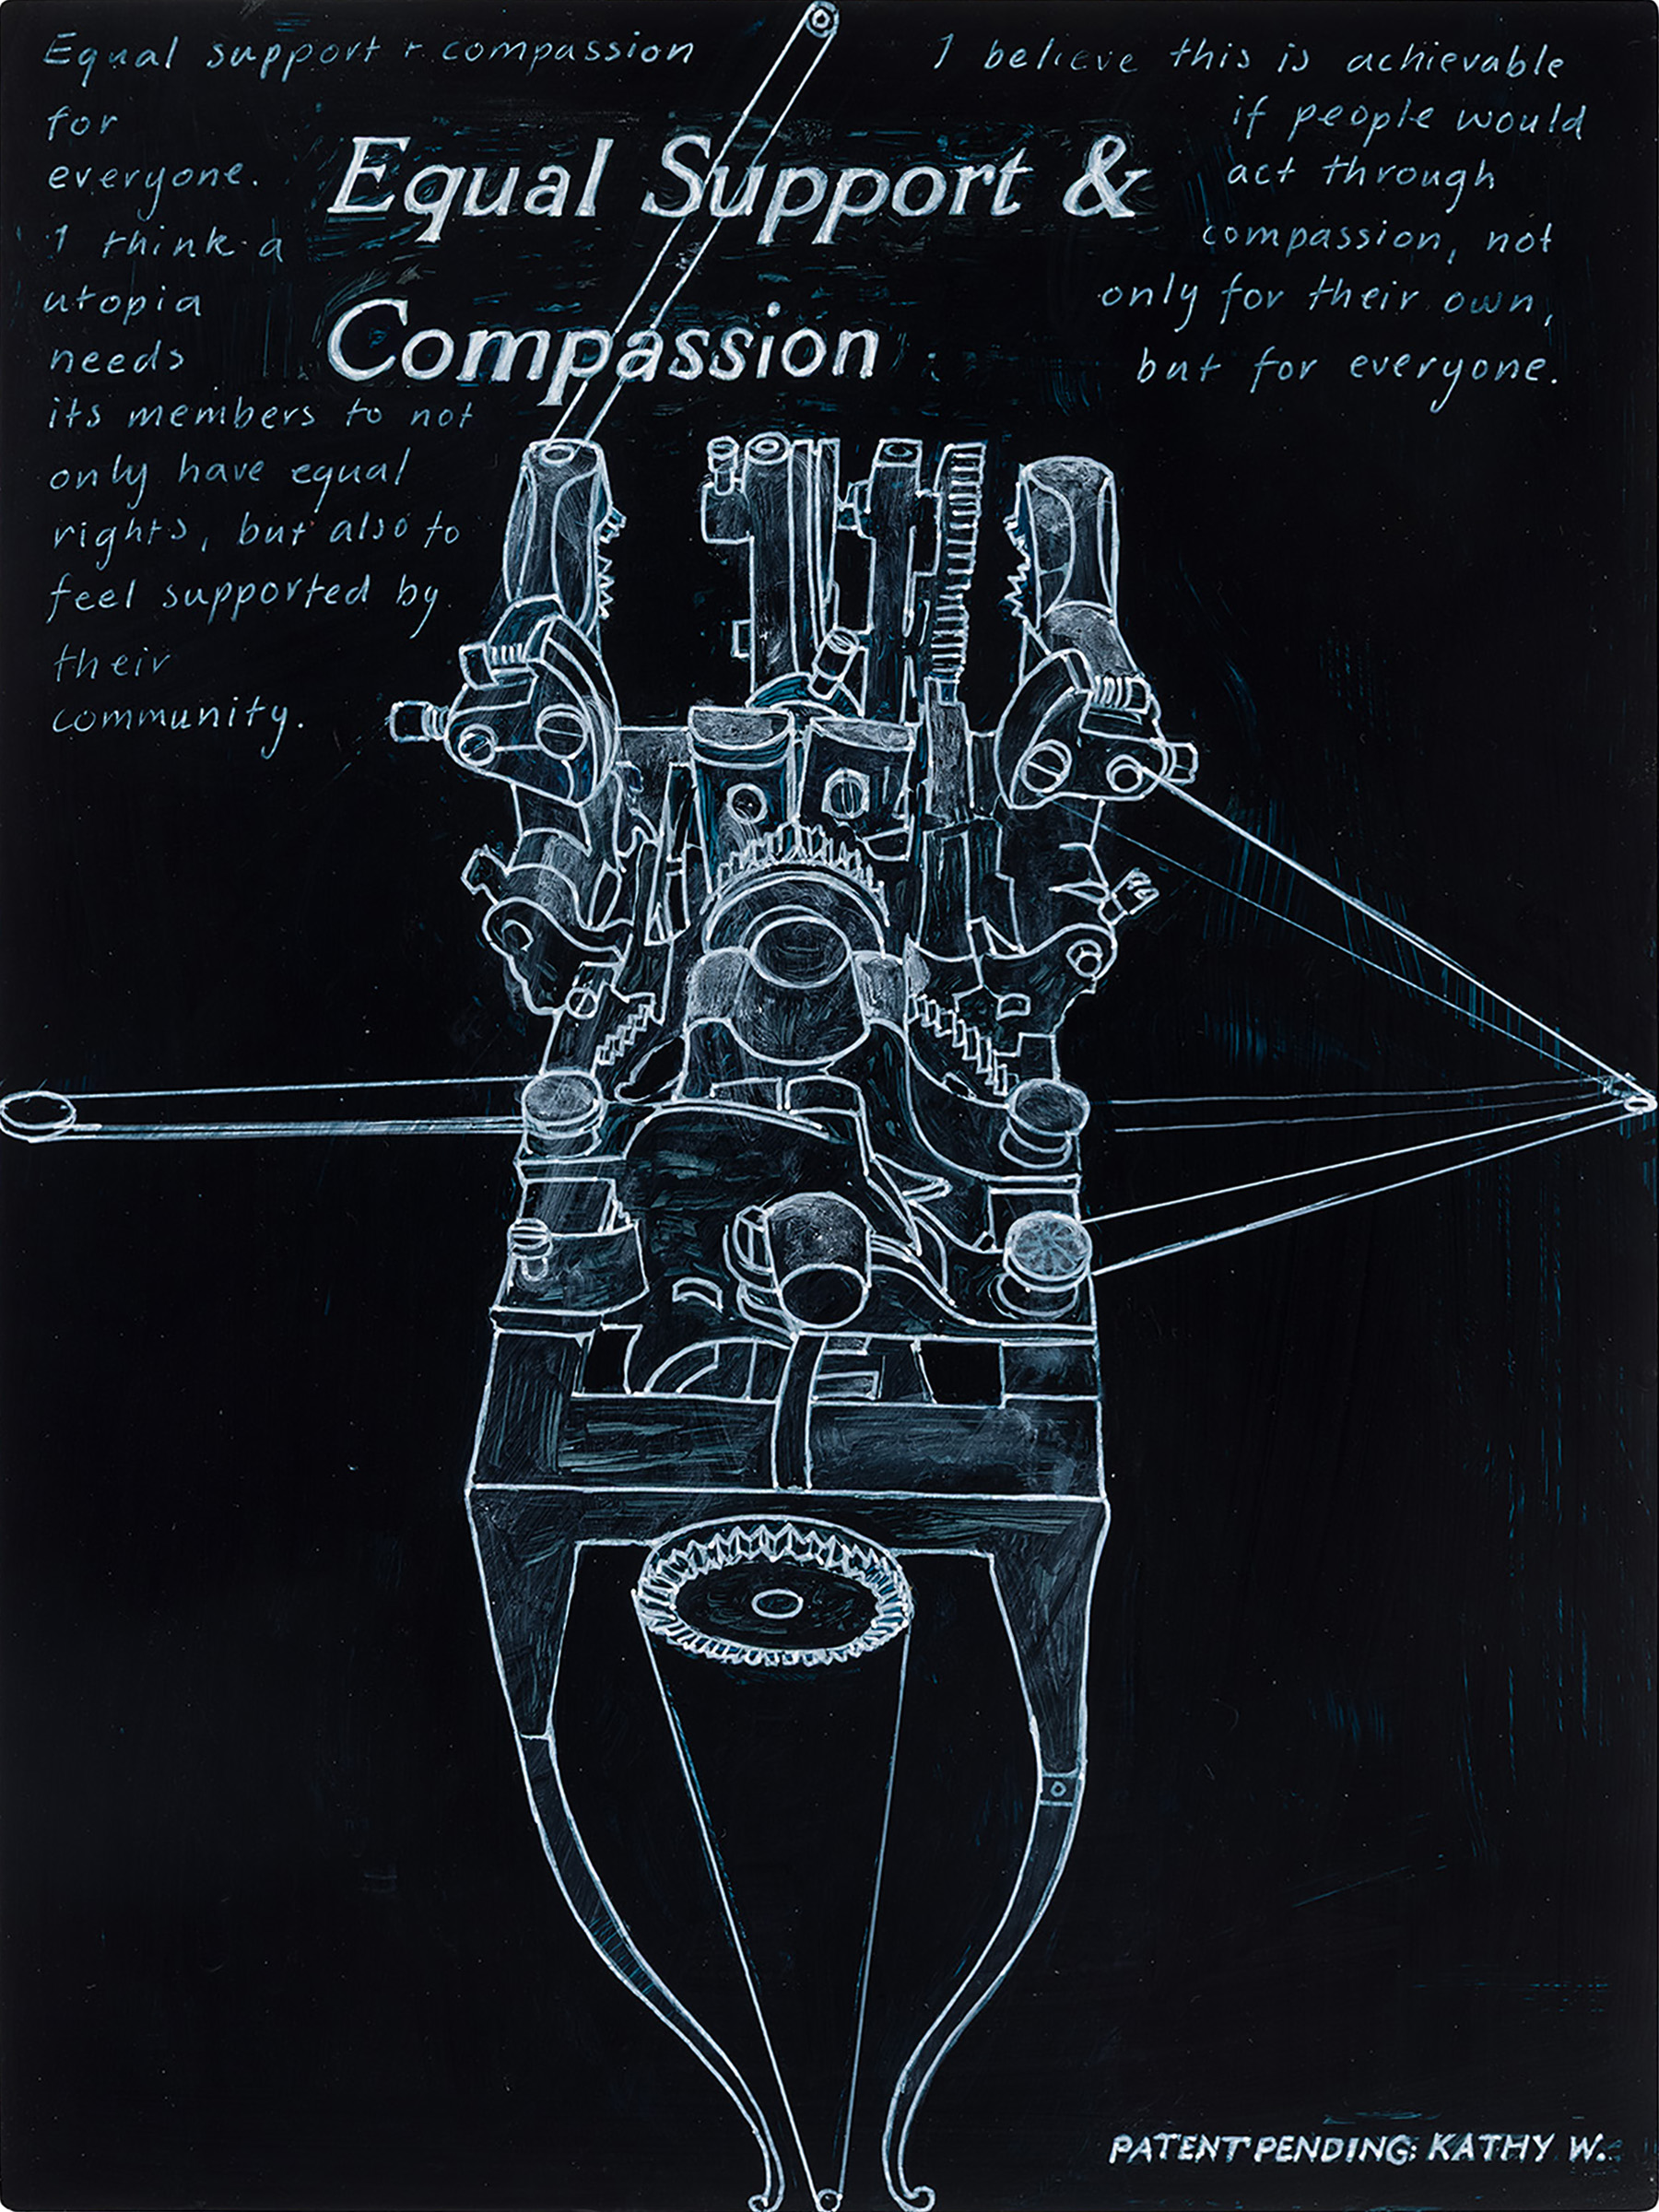 Equal support + compassion
for
everyone.
I think a
utopia
needs
its members to not
only have equal
rights, but also to
feel supported by
their
community.
Equal Support &
Compassion
I believe this is achievable
if people would
act through
compassion, not
only for their own,
but for everyone.
PATENT PENDING: KATHY W.